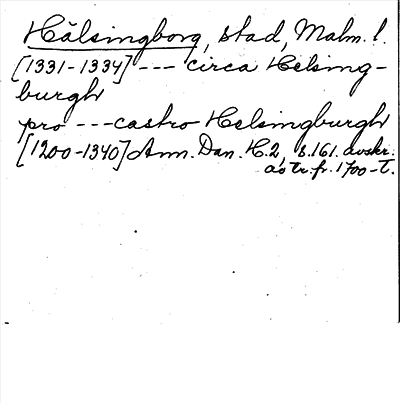 Hälsingborg, stad, Malm. l.
[1331-1334] --- circa Helsing-
burgh
pro --- castro Helsingburgh
[1200-1340] Ann. Dan. H. 2, s. 161. avskr.
a o tr. fr. 1700-t.